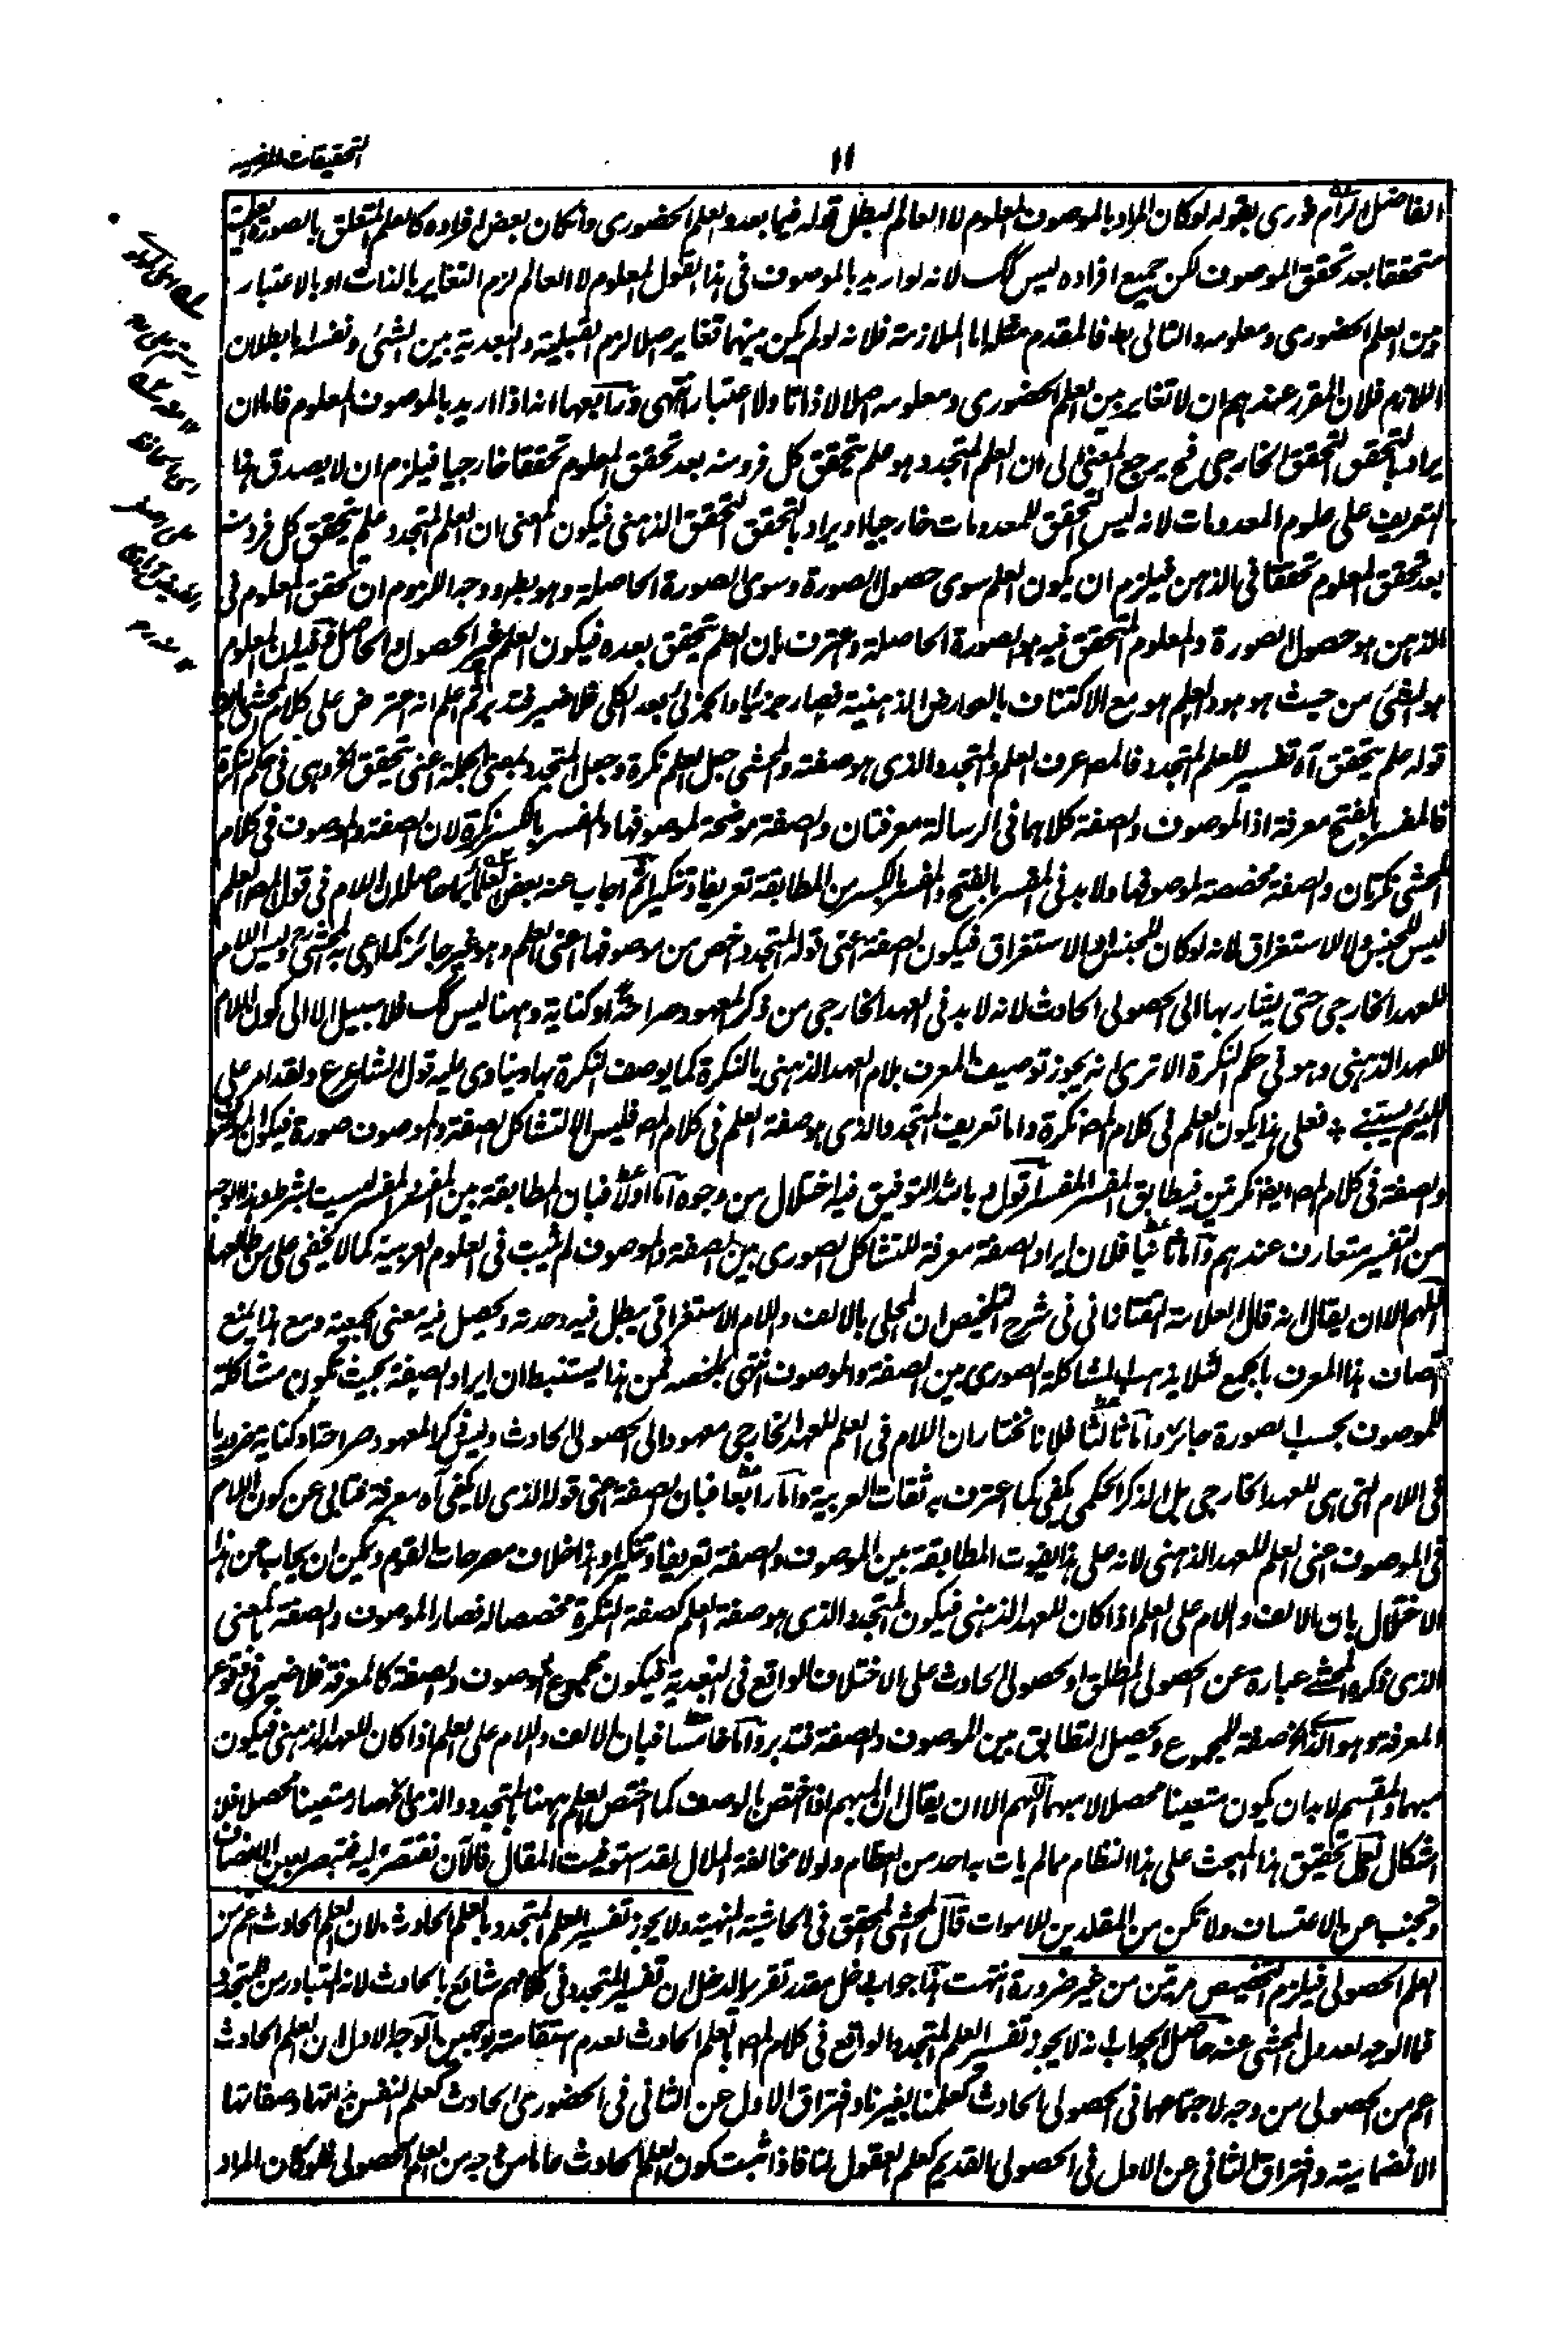 التحقيقات المرضيه
١١
الفاضل الرامفوري بقوله لو كان المراد بالموصوف المعلوم لا العالم لبطل قوله فيما بعد والعلم الحضوري وان كان بعض افراده كالعلم المتعلق بالصورة العلمية
متحققا بعد تحقق الموصوف لكن جميع افراده ليس كك لانه لو اريد بالموصوف في هذا القول المعلوم لا العالم لزم التغاير بالذات او بالاعتبار
بين العلم الحضوري ومعلومه والتالي بط فالمقدم مثله اما الملازمة فلانه لو لم يكن بينهما تغاير اصلا لزم القبلية والبعدية بين الشئ ونفسه واما بطلان
اللازم فلان المقرر عندهم ان لا تغاير بين العلم الحضوري ومعلومه اصلا لا ذاتا ولا اعتبارا انتهى ورابعها انه اذا اريد بالموصوف المعلوم فاما ان
يراد بالتحقق التحقق الخارجي فح يرجع المعنى الى ان العلم المتجدد هو علم يتحقق كل فرد منه بعد تحقق المعلوم تحققا خارجيا فيلزم ان لا يصدق هذا
التعريف على علوم المعدومات لانه ليس التحقق للمعدومات خارجيا او يراد بالتحقق التحقق الذهني فيكون المعنى ان العلم المتجدد علم يتحقق كل فرد منه
بعد تحقق المعلوم تحققا في الذهن فيلزم ان يكون العلم سوى حصول الصورة وسوى الصورة الحاصلة وهو بط ووجه اللزوم ان تحقق المعلوم في
الذهن هو حصول الصورة والمعلوم المتحقق فيه هو الصورة الحاصلة واعترف بان العلم يتحقق بعده فيكون العلم غير الحصول والحاصل فان قيل ان المعلوم
هو الشئ من حيث هو هو والعلم هو مع الاكتناف بالعوارض الذهنية فصار جزئيا والجزئي بعد الكلي فلا ضير فتدبر ثم اعلم انه اعترض على كلام المحشي بان
قوله علم يتحقق آه تفسير للعلم المتجدد فالمص عرف العلم والمتجدد الذي هو صفته والمحشي جعل العلم نكرة وجعل المتجدد بمعنى الجملة اعني يتحقق الخ وهي في حكم النكرة
فالمفسر بالفتح معرفة اذ الموصوف والصفة كلاهما في الرسالة معرفتان والصفة موضحة لموصوفها والمفسر بالكسر نكرة لان الصفة والموصوف في كلام
المحشي نكرتان والصفة مخصصة لموصوفها ولا بد في المفسر بالفتح والمفسر بالكسر من المطابقة تعريفا وتنكيرا ثم اجاب عنه بعض العلماء بما حاصله ان اللام في قول المص العلم
ليس للجنس ولا للاستغراق لانه لو كان للجنس او للاستغراق فيكون الصفة اعني قوله المتجدد اخص من موصوفها اعني العلم وهو غير جائز كما ادعى به المحشي وليس اللام
للعهد الخارجي حتى يشار بها الى الحصولي الحادث لانه لا بد في العهد الخارجي من ذكر المعهود صراحة او كناية وههنا ليس كك فلا سبيل الا الى كون اللام
للعهد الذهني وهو في حكم النكرة الا ترى انه يجوز توصيف المعرف بلام العهد الذهني بالنكرة كما يوصف النكرة بها وينادي عليه قول الشاعر ع ولقد امر على
اللئيم يسبني ٭ فعلى هذا يكون العلم في كلام المص نكرة واما تعريف المتجدد الذي هو صفة العلم في كلام المص فليس الا لتشاكل الصفة والموصوف صورة فيكون الموصوف
والصفة في كلام المص ايضا نكرتين فيطابق المفسر المفسر اقول وبالله التوفيق فيه اختلال من وجوه اما اولا فبان المطابقة بين المفسر والمفسر ليست بشرط وهذا الوجه
من التفسير متعارف عندهم واما ثانيا فلان ايراد الصفة معرفة للتشاكل الصوري بين الصفة والموصوف لم يثبت في العلوم العربية كما لا يخفى على من طالعها
اللهم الا ان يقال انه قال العلامة التفتازاني في شرح التلخيص ان المحلى بالالف واللام الاستغراقي يبطل فيه وحدته ويحصل فيه معنى الجمعية ومع هذا يمنع
اتصاف هذا المعرف بالجمع لئلا يذهب المشاكلة الصوري بين الصفة والموصوف انتهى ملخصه فمن هذا يستنبط ان ايراد الصفة بحيث تكون مشاكلة
للموصوف بحسب الصورة جائز واما ثالثا فلانا نختار ان اللام في العلم للعهد الخارجي معهود الى الحصولي الحادث وليس ذكر المعهود صراحة او كناية ضروريا
في اللام التي هي للعهد الخارجي بل الذكر الحكمي يكفي كما اعترف به ثقات العربية واما رابعا فبان الصفة اعني قوله الذي لا يكفي آه معرفة فتابى عن كون اللام
في الموصوف اعني العلم للعهد الذهني لانه على هذا يفوت المطابقة بين الموصوف والصفة تعريفا وتنكيرا وهذا خلاف مصرحات القوم ويمكن ان يجاب عن هذا
الاختلال بان الالف واللام على العلم اذا كان للعهد الذهني فيكون المتجدد الذي هو صفة العلم كصفة النكرة مخصصا له فصار الموصوف والصفة بالمعنى
الذي ذكره المحشي عبارة عن الحصولي المطلق او الحصولي الحادث على الاختلاف الواقع في البعدية فيكون مجموع الموصوف والصفة كالمعرفة فلا ضير في وقوع
المعرفة وهو الذي الخ صفة للمجموع ويحصل التطابق بين الموصوف والصفة فتدبر واما خامسا فبان الالف واللام على العلم اذا كان للعهد الذهني فيكون
مبهما والمقسم لا بد ان يكون متعينا محصلا لا مبهما اللهم الا ان يقال ان المبهم اذا اختص بالوصف كما اختص العلم ههنا بالمتجدد والذي الخ صار متعينا محصلا فلا
اشكال لعل تحقيق هذا المبحث على هذا النظام مما لم يات به احد من العظام ولولا مخالفة الملال لقد استوفيت المقال فالآن نقتصر عليه فتبصر بعين الانصاف
وتجنب عن الاعتساف ولا تكن من المقلدين للاموات قال المحشي المحقق في الحاشية المنهية ولا يجوز تفسير العلم المتجدد بالعلم الحادث لان العلم الحادث اعم من
العلم الحصولي فيلزم التخصيص مرتين من غير ضرورة انتهت هذا جواب دخل مقدر تقرير الدخل ان تفسير المتجدد في كلامهم شائع بالحادث لانه المتبادر من المتجدد
فما الوجه لعدول المحشي عنه حاصل الجواب انه لا يجوز تفسير العلم المتجدد الواقع في كلام المص بالعلم الحادث لعدم استقامته بوجهين الوجه الاول ان العلم الحادث
اعم من الحصولي من وجه لاجتماعهما في الحصولي الحادث كعلمنا بغيرنا وافتراق الاول عن الثاني في الحضوري الحادث كعلم النفس بذاتها وصفاتها
الانضمامية وافتراق الثاني عن الاول في الحصولي القديم كعلم العقول لنا فاذا ثبت كون العلم الحادث عاما من وجه من العلم الحصولي فلو كان المراد